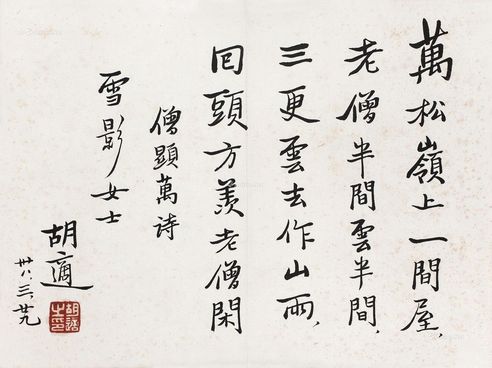 萬松嶺上一間屋，
老僧半間雲半間，
三更雲去作山雨，
回頭方羨老僧閑
僧顯萬詩
雪影女士
胡適
卅八、三、廿九
胡適之印